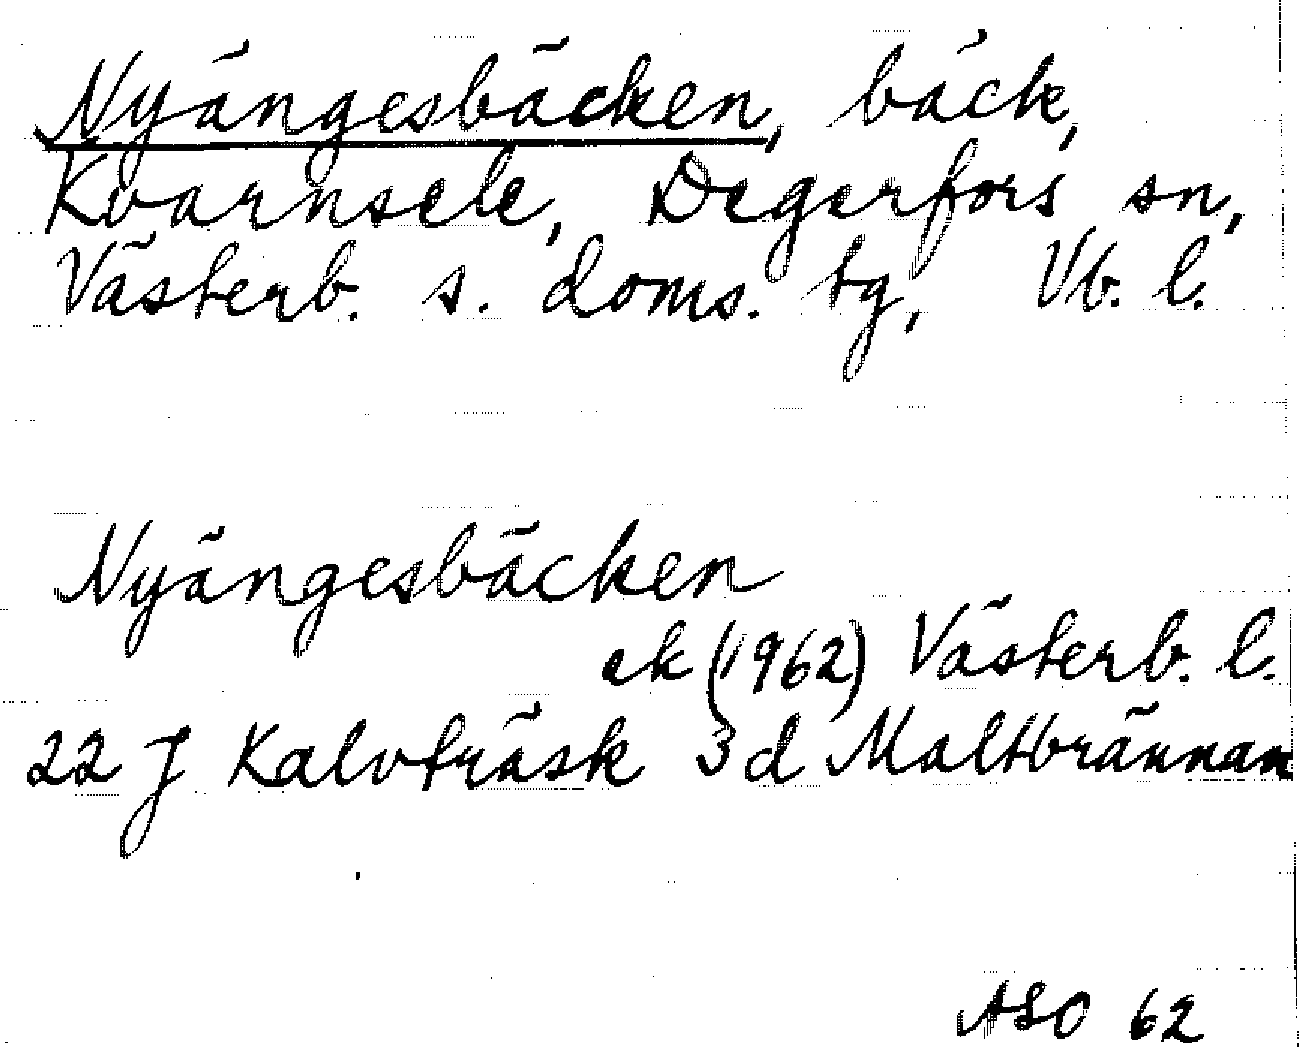 Nyängesbäcken, bäck,
Kvarnsele, Degerfors sn,
Västerb. s. doms. tg, Vb. l.
Nyängesbäcken
ek (1962) Västerb. l.
22 J Kalvträsk 3 d Maltbrännan
ASO 62